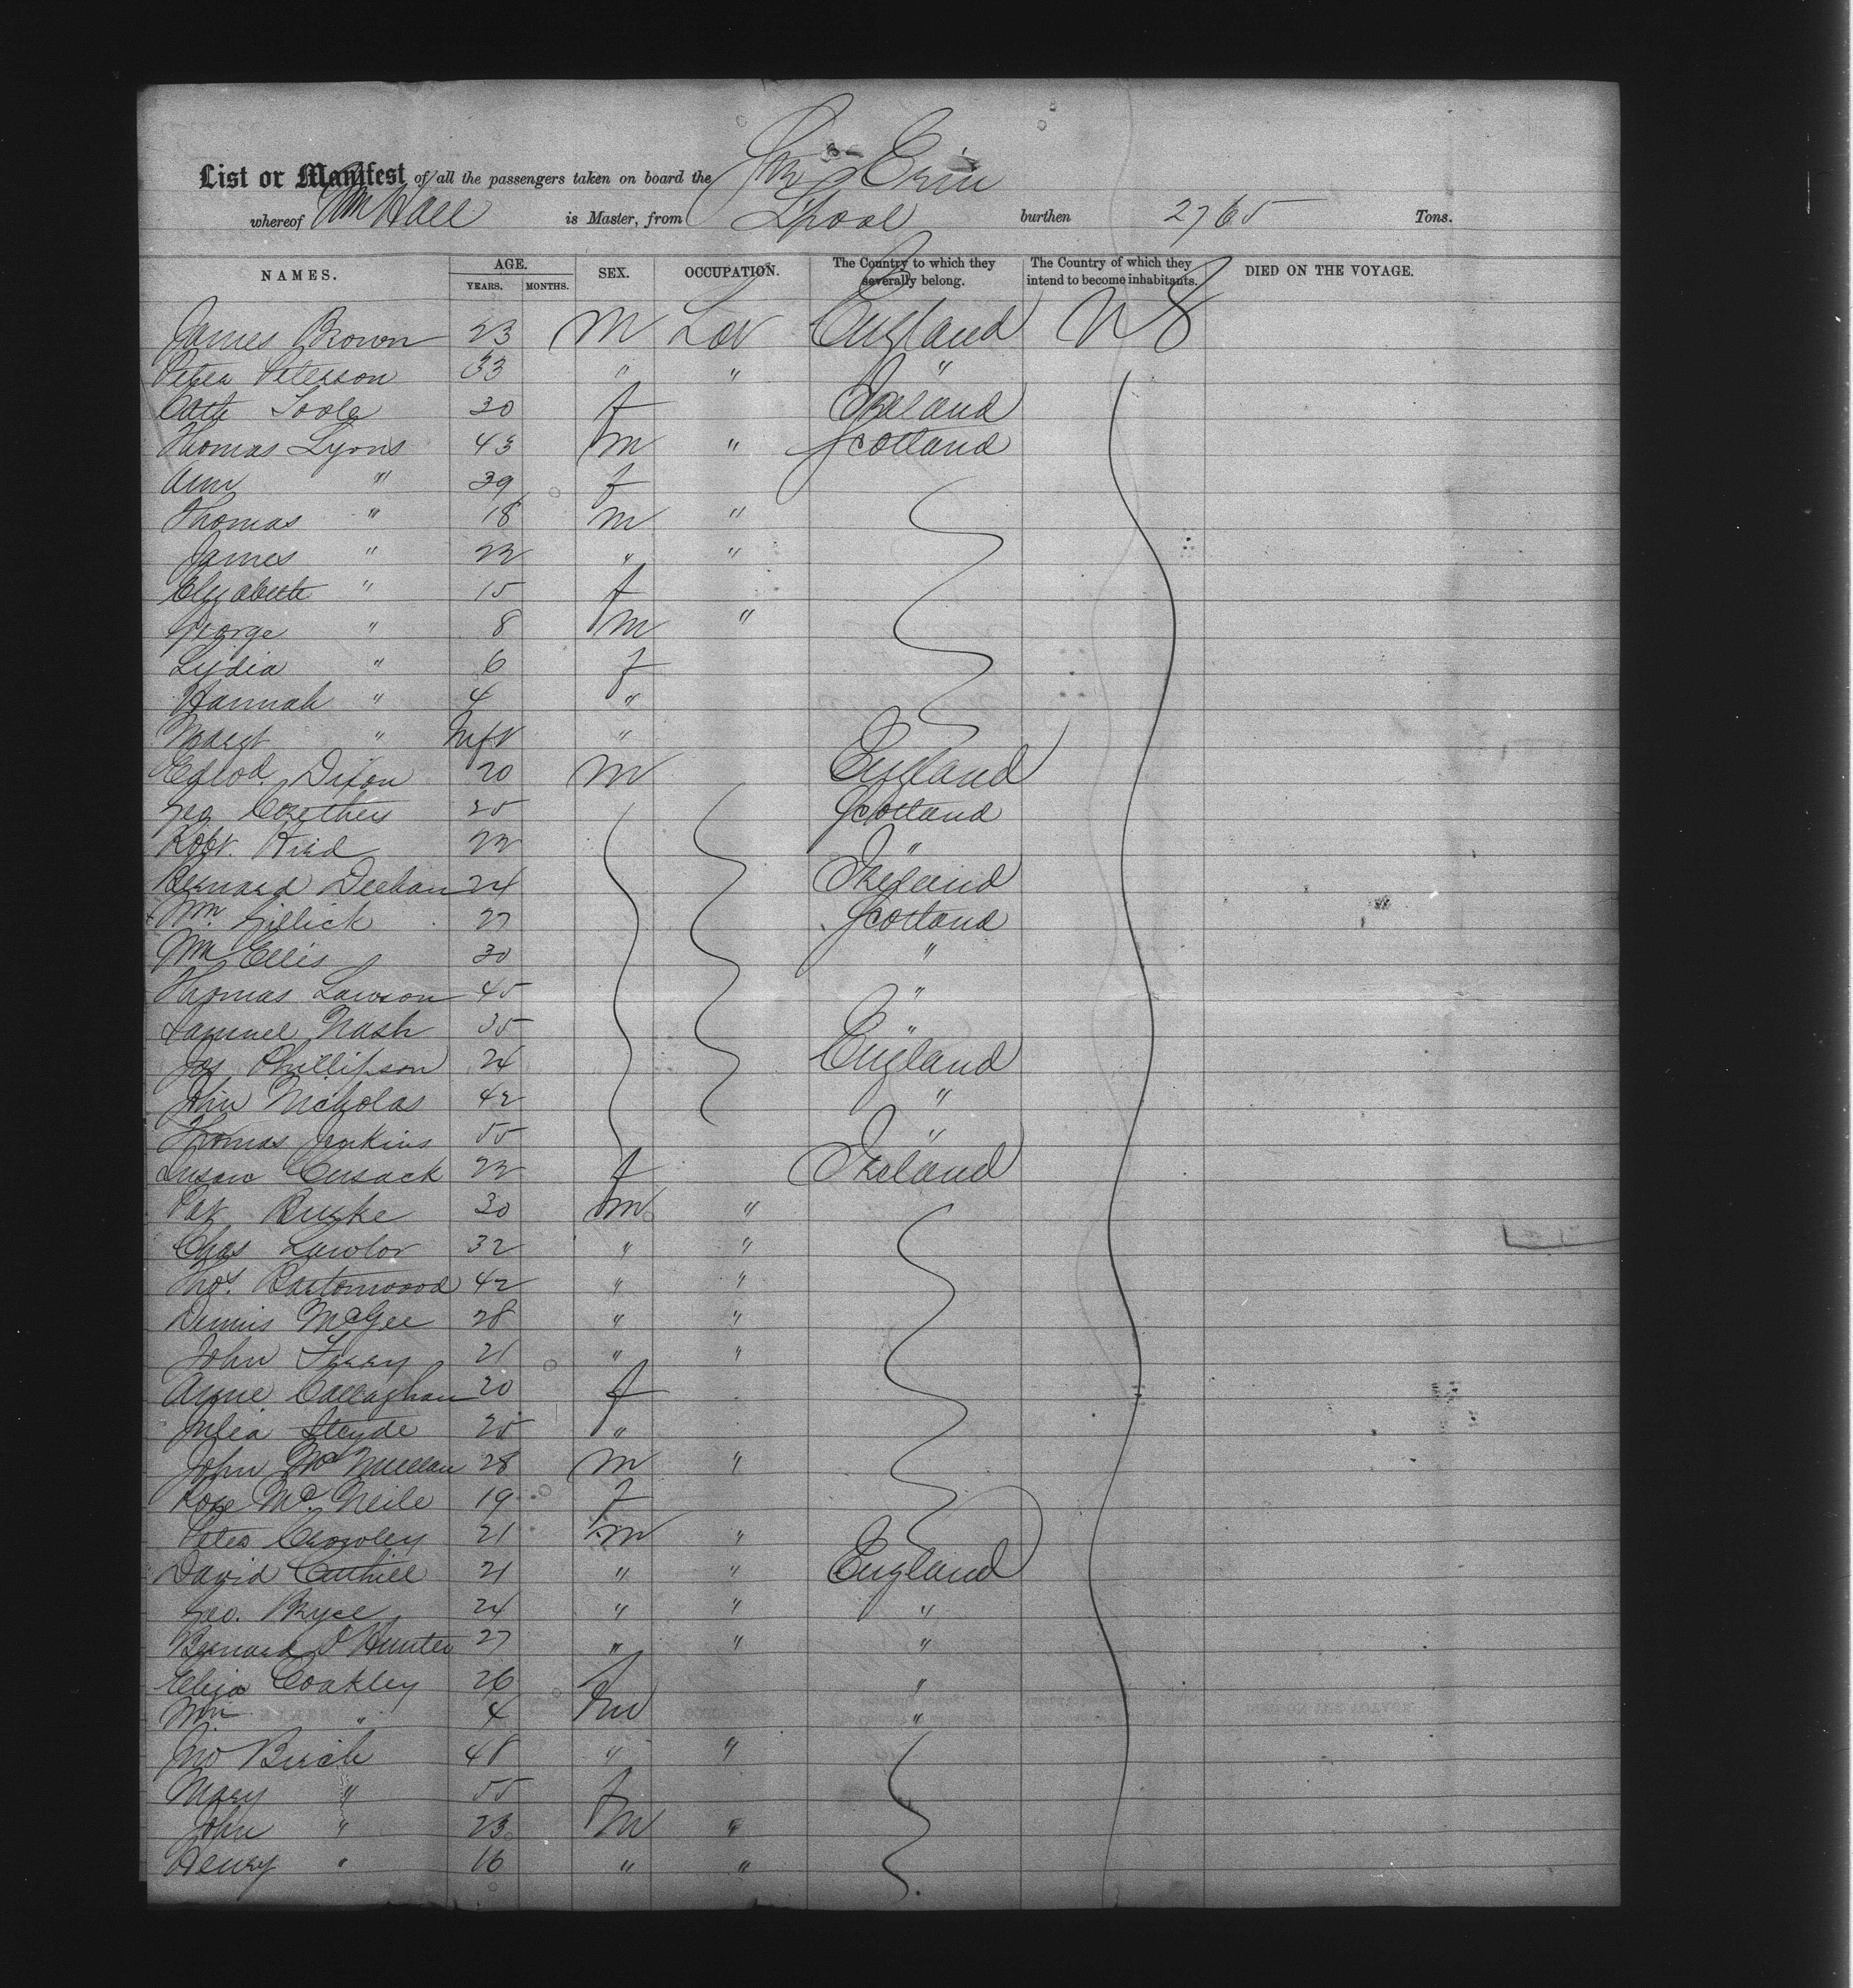 List or Manifest of all the passengers taken on board the Str Erin
whereof Wm Hall is Master, from L'pool burthen 2765 Tons.
NAMES. AGE. YEARS. MONTHS. SEX. OCCUPATION. The Country to which they severally belong. The Country of which they intend to become inhabitants. DIED ON THE VOYAGE.
James Brown 23 M Lab England US
Peter Peterson 33 " " "
Cath Toole 30 f Ireland
Thomas Lyons 43 M " Scotland
Ann " 39 f
Thomas " 18 M "
James " 22 " "
Elizabeth " 15 f
George " 8 M "
Lydia " 6 f
Hannah " 4 "
Margt " Inft "
Edwd. Dixon 20 M England
Geo 25 Scotland
Robt. 22 "
Bernard Deehan 24 Ireland
Wm. Gillick 27 Scotland
Wm Ellis 30 "
Thomas Lawson 45 "
Samuel Nash 35 "
Jos Phillipson 24 England
John Nicholas 42 "
Thomas Jenkins 55 "
Susan Cusack 22 f Ireland
Pat Burke 30 M "
Chas Lawlor 32 " "
Thos. Bartonwood 42 " "
Dennis McGee 28 " "
John 21 " "
Anne Callaghan 20 f
Julia 25 "
John McMullan 28 M "
Rose Mc.Neile 19 f
Peter Crowley 21 M "
David Cuthill 21 " " England
Geo. Bryce 24 " " "
Bernard D Hunter 27 " " "
Eliza Coakley 26 f "
Wm " 4 M "
Jno Birch 48 " "
Mary " 55 f
John " 23 M "
Henry " 16 " "